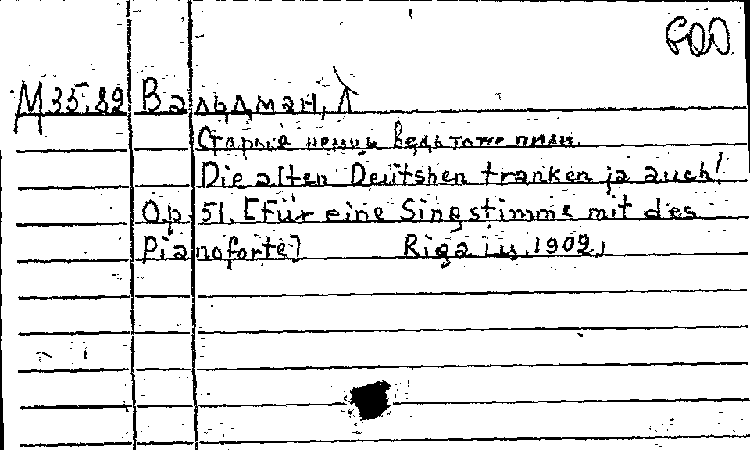 600
М 35.89 Вальдман, Л
Старые немцы ведь тоже пили.
Die alten Deutshen tranken ja auch!
Op. 51. [Für eine Singstimme mit des
Pianoforte] Riga, 1909,